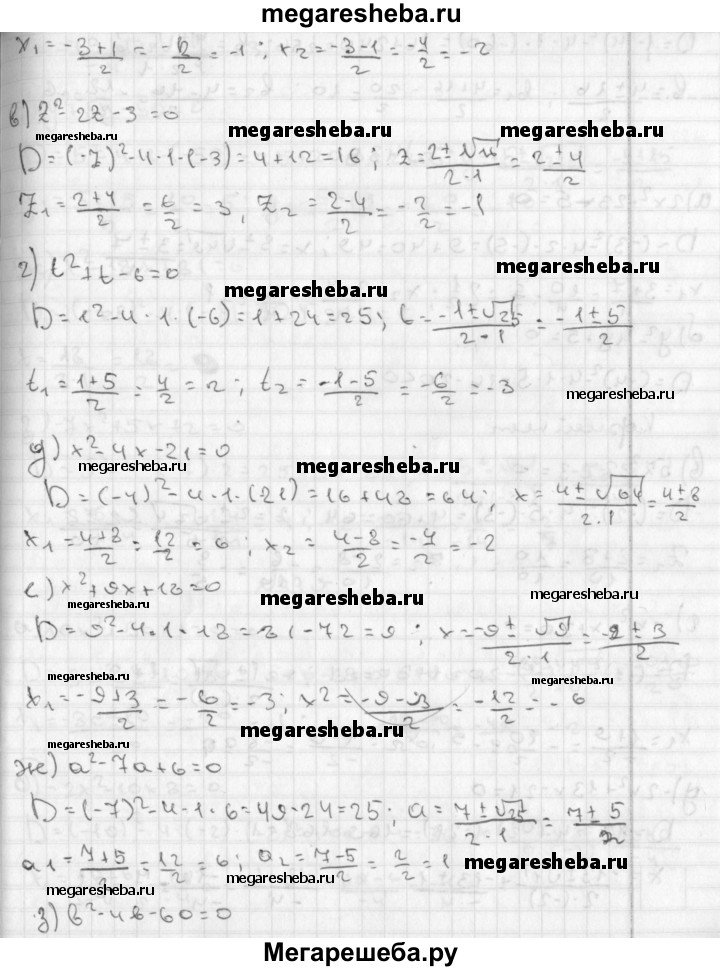 megaresheba.ru
x₁ = -3+1/2 = -6/2 = -1; x₂ = -3-1/2 = -4/2 = -2
в) z² - 2z - 3 = 0
megaresheba.ru megaresheba.ru megaresheba.ru
D = (-7)² - 4·1·(-3) = 4+12 = 16; z = 2±√16/2·1 = 2±4/2
z₁ = 2+4/2 = 6/2 = 3, z₂ = 2-4/2 = -2/2 = -1
megaresheba.ru megaresheba.ru
г) t² + t - 6 = 0
megaresheba.ru megaresheba.ru
D = 1² - 4·1·(-6) = 1+24 = 25; t = -1±√25/2·1 = -1±5/2
t₁ = 1+5/2 = 4/2 = 2; t₂ = -1-5/2 = -6/2 = -3
megaresheba.ru
д) x² - 4x - 21 = 0
megaresheba.ru megaresheba.ru megaresheba.ru
D = (-4)² - 4·1·(21) = 16+48 = 64; x = 4±√64/2·1 = 4±8/2
x₁ = 4+8/2 = 12/2 = 6; x₂ = 4-8/2 = -4/2 = -2
megaresheba.ru
е) x² + 9x + 18 = 0
megaresheba.ru megaresheba.ru megaresheba.ru
D = 9² - 4·1·18 = 81-72 = 9; x = -9±√9/2·1 = -9±3/2
megaresheba.ru megaresheba.ru
x₁ = -9+3/2 = -6/2 = -3; x2 = -9-3/2 = -12/2 = -6
megaresheba.ru megaresheba.ru
ж) a² - 7a + 6 = 0
megaresheba.ru
D = (-7)² - 4·1·6 = 49-24 = 25; a = 7±√25/2·1 = 7±5/2
a₁ = 7+5/2 = 12/2 = 6; a₂ = 7-5/2 = 2/2 = 1
megaresheba.ru megaresheba.ru megaresheba.ru
з) b² - 4b - 60 = 0
Мегарешеба.ру